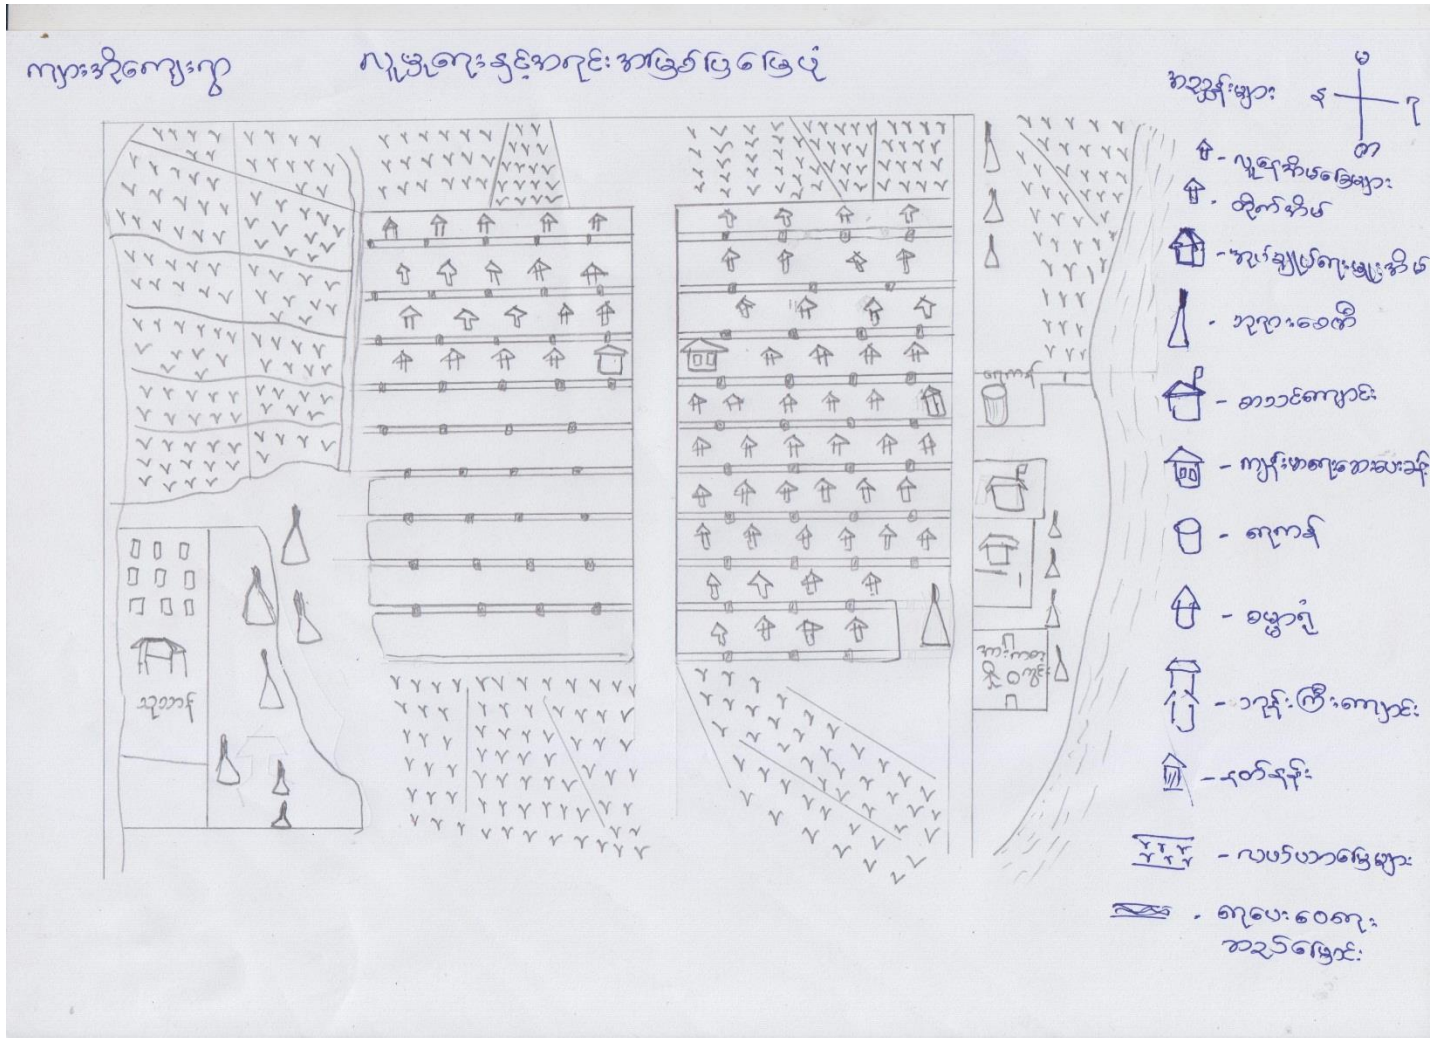 ကျားအိုကျေးရွာ
လူမှုရေးနှင့်အရင်းအမြစ်ပြမြေပုံ
အညွှန်းများ
မ
န
ဂ
တ
- လူနေအိမ်ခြေများ
- တိုက်အိမ်
- အုပ်ချုပ်ရေးမှူးအိမ်
- ဘုရားစေတီ
- စာသင်ကျောင်း
- ကျန်းမာရေးဆေးပေးခန်း
- ရေကန်
- ဓမ္မာရုံ
- ဘုန်းကြီးကျောင်း
- နတ်နန်း
- လယ်ယာမြေများ
- ရေပေးဝေရေး
သွယ်မြောင်း
ရေကန်
အားကစား
ကွင်း
သုဿာန်